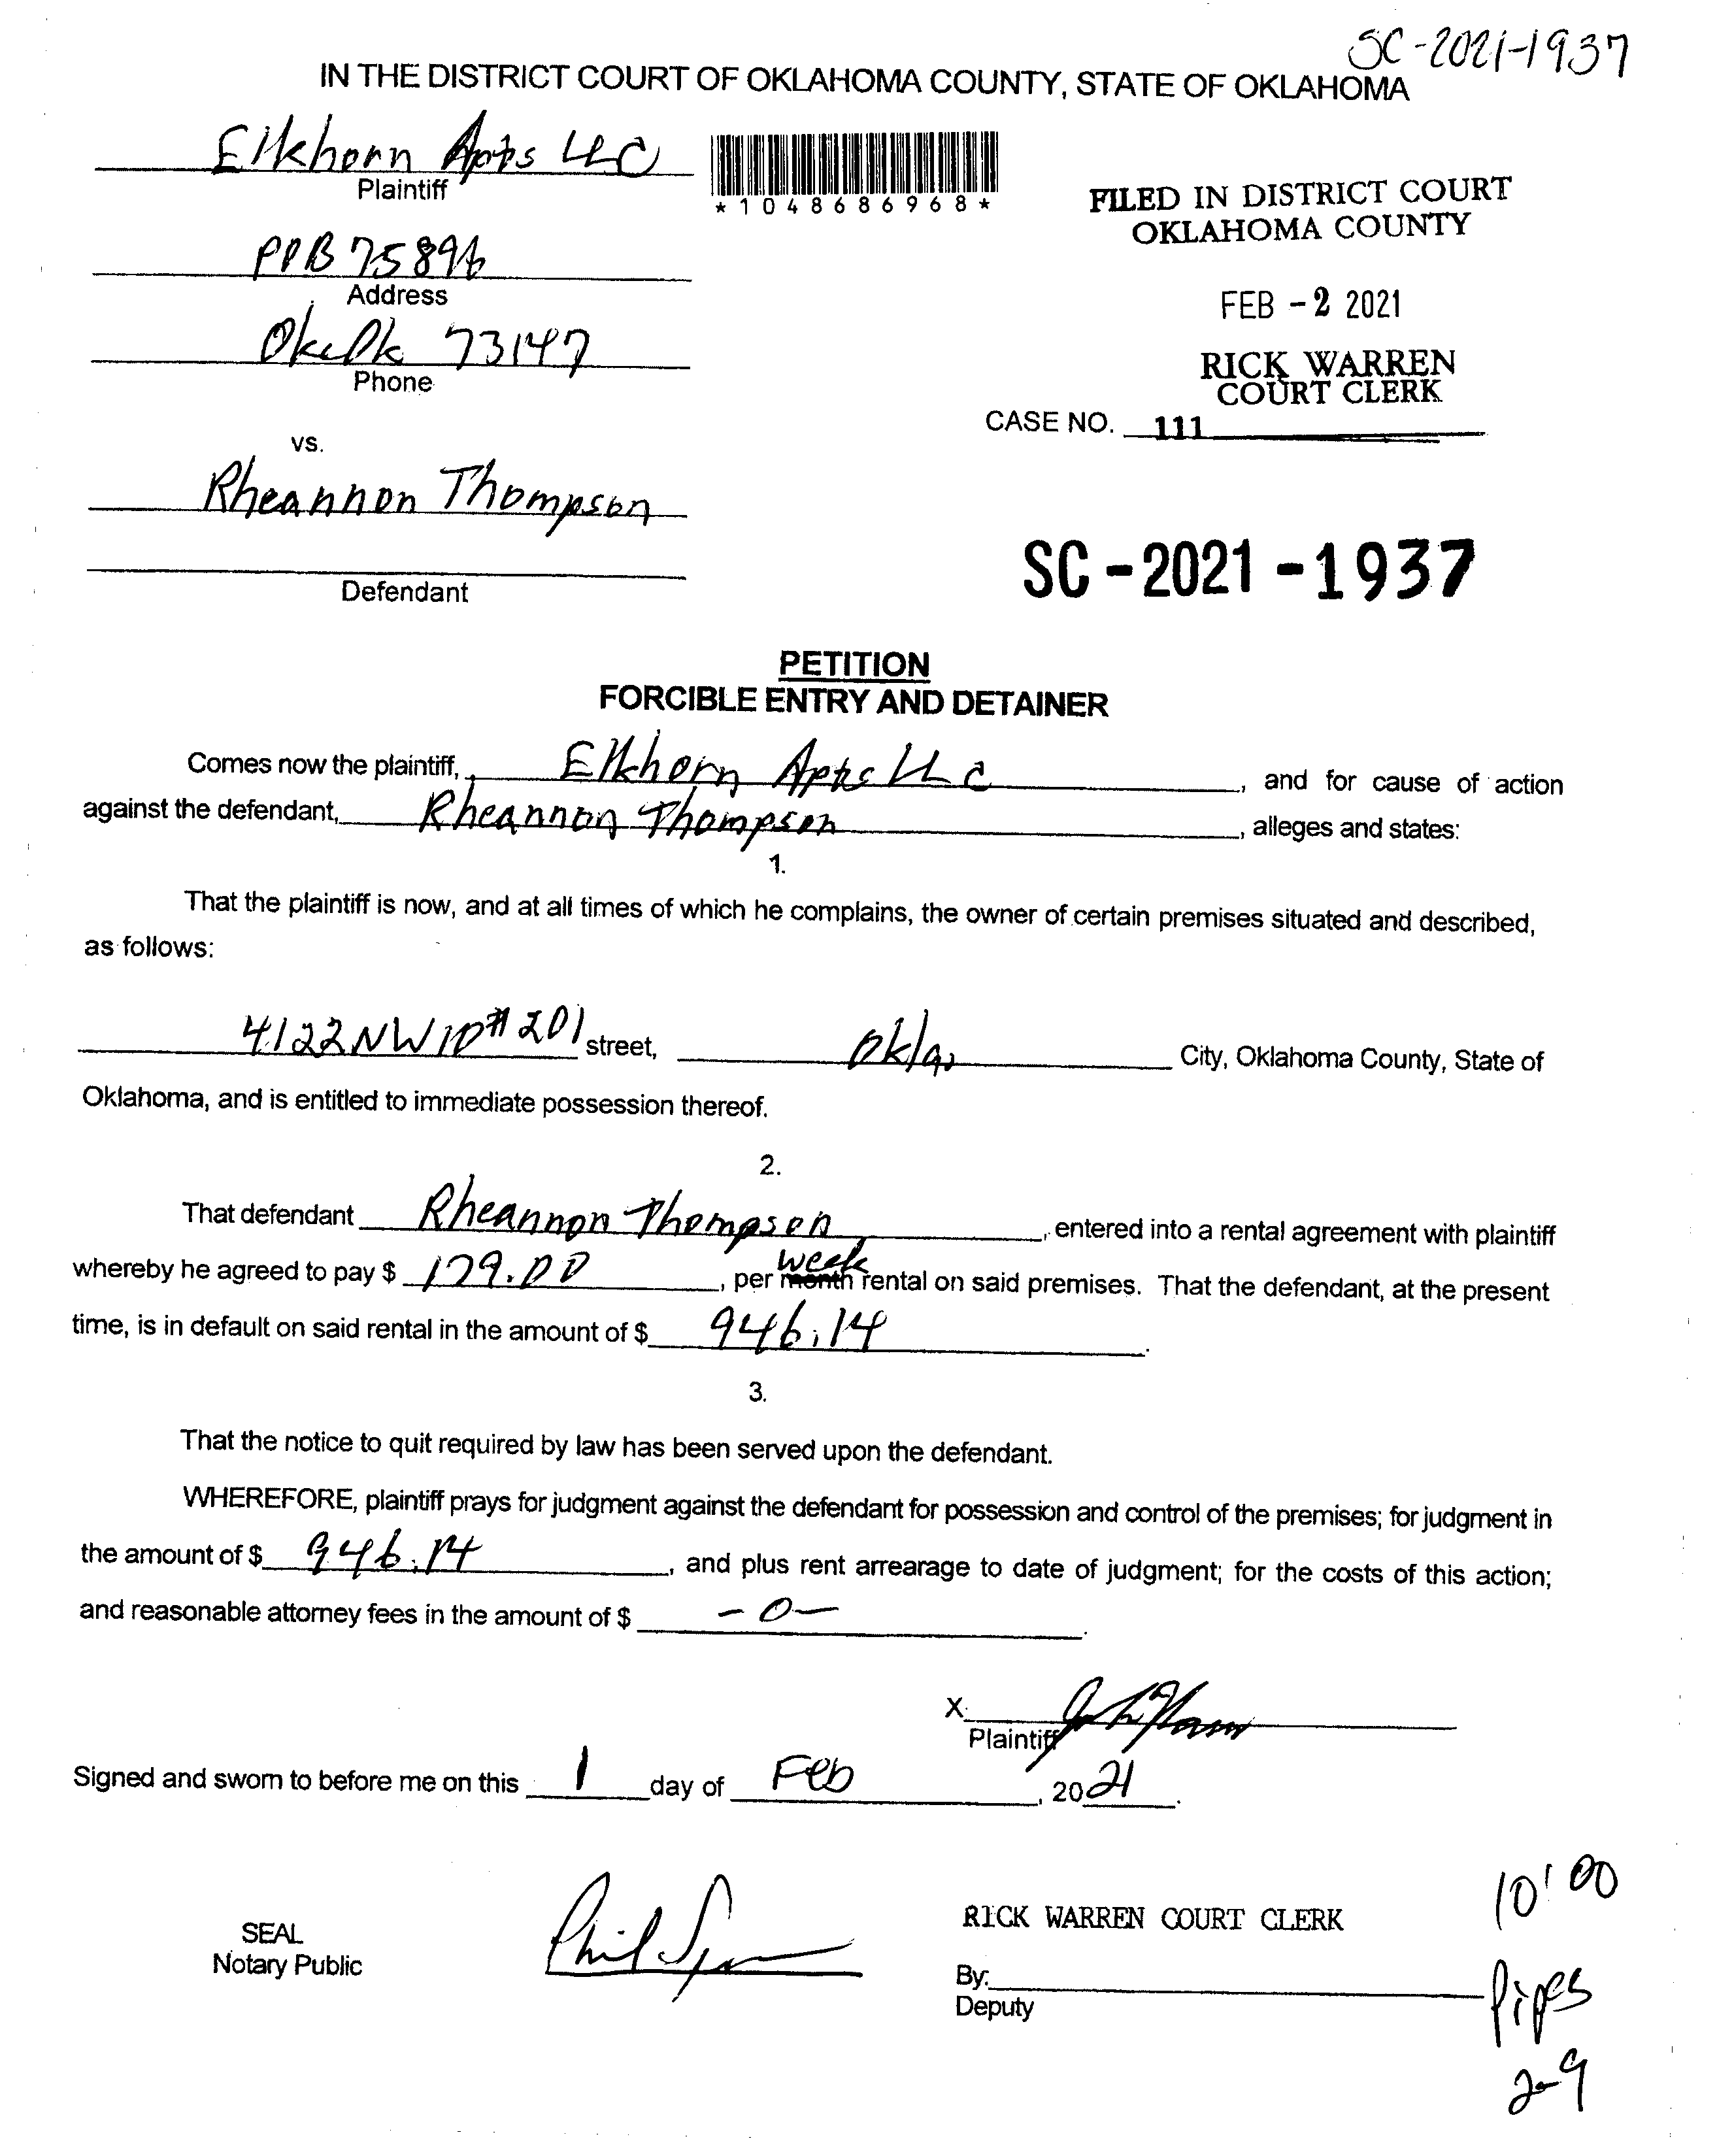 SC-2021-1937
IN THE DISTRICT COURT OF OKLAHOMA COUNTY, STATE OF OKLAHOMA
Elkhorn Apts LLC
Plaintiff
*1048686968*
FILED IN DISTRICT COURT
OKLAHOMA COUNTY
POB 75896
Address
FEB -2 2021
Okc Ok 73147
Phone
RICK WARREN
COURT CLERK
CASE NO. 111
vs.
Rheannon Thompson
Defendant
SC-2021-1937
PETITION
FORCIBLE ENTRY AND DETAINER
Comes now the plaintiff, Elkhorn Apts LLC, and for cause of action
against the defendant, Rheannon Thompson, alleges and states:
1.
That the plaintiff is now, and at all times of which he complains, the owner of certain premises situated and described,
as follows:
4122 NW 10 #201 street, Okla, City, Oklahoma County, State of
Oklahoma, and is entitled to immediate possession thereof.
2.
That defendant Rheannon Thompson, entered into a rental agreement with plaintiff
week
whereby he agreed to pay $ 179.00, per month rental on said premises. That the defendant, at the present
time, is in default on said rental in the amount of $ 946.14.
3.
That the notice to quit required by law has been served upon the defendant.
WHEREFORE, plaintiff prays for judgment against the defendant for possession and control of the premises; for judgment in
the amount of $ 946.14, and plus rent arrearage to date of judgment; for the costs of this action;
and reasonable attorney fees in the amount of $ -0-.
X
Plaintiff
Signed and sworn to before me on this 1 day of Feb, 2021.
10:00
SEAL
Notary Public
Phil
RICK WARREN COURT CLERK
By:
Deputy
Pipes
2-9